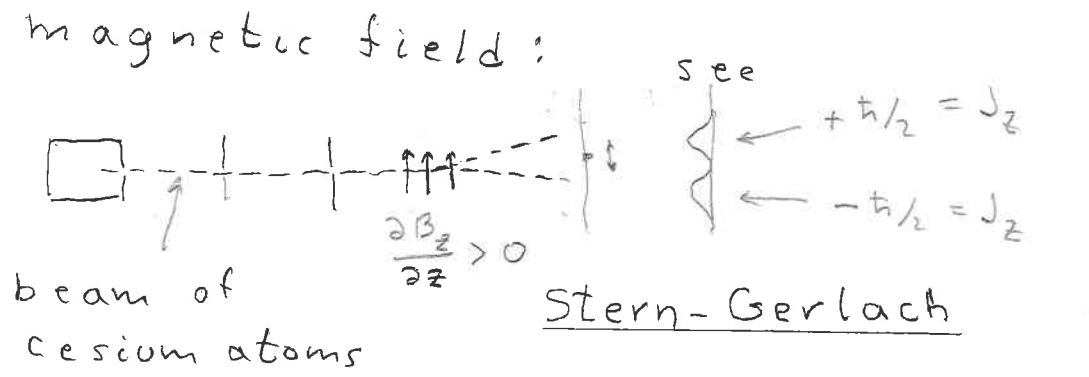 magnetic field:
see
+ ħ/2 = J_z
∂B_z/∂z > 0
− ħ/2 = J_z
beam of
cesium atoms
Stern-Gerlach